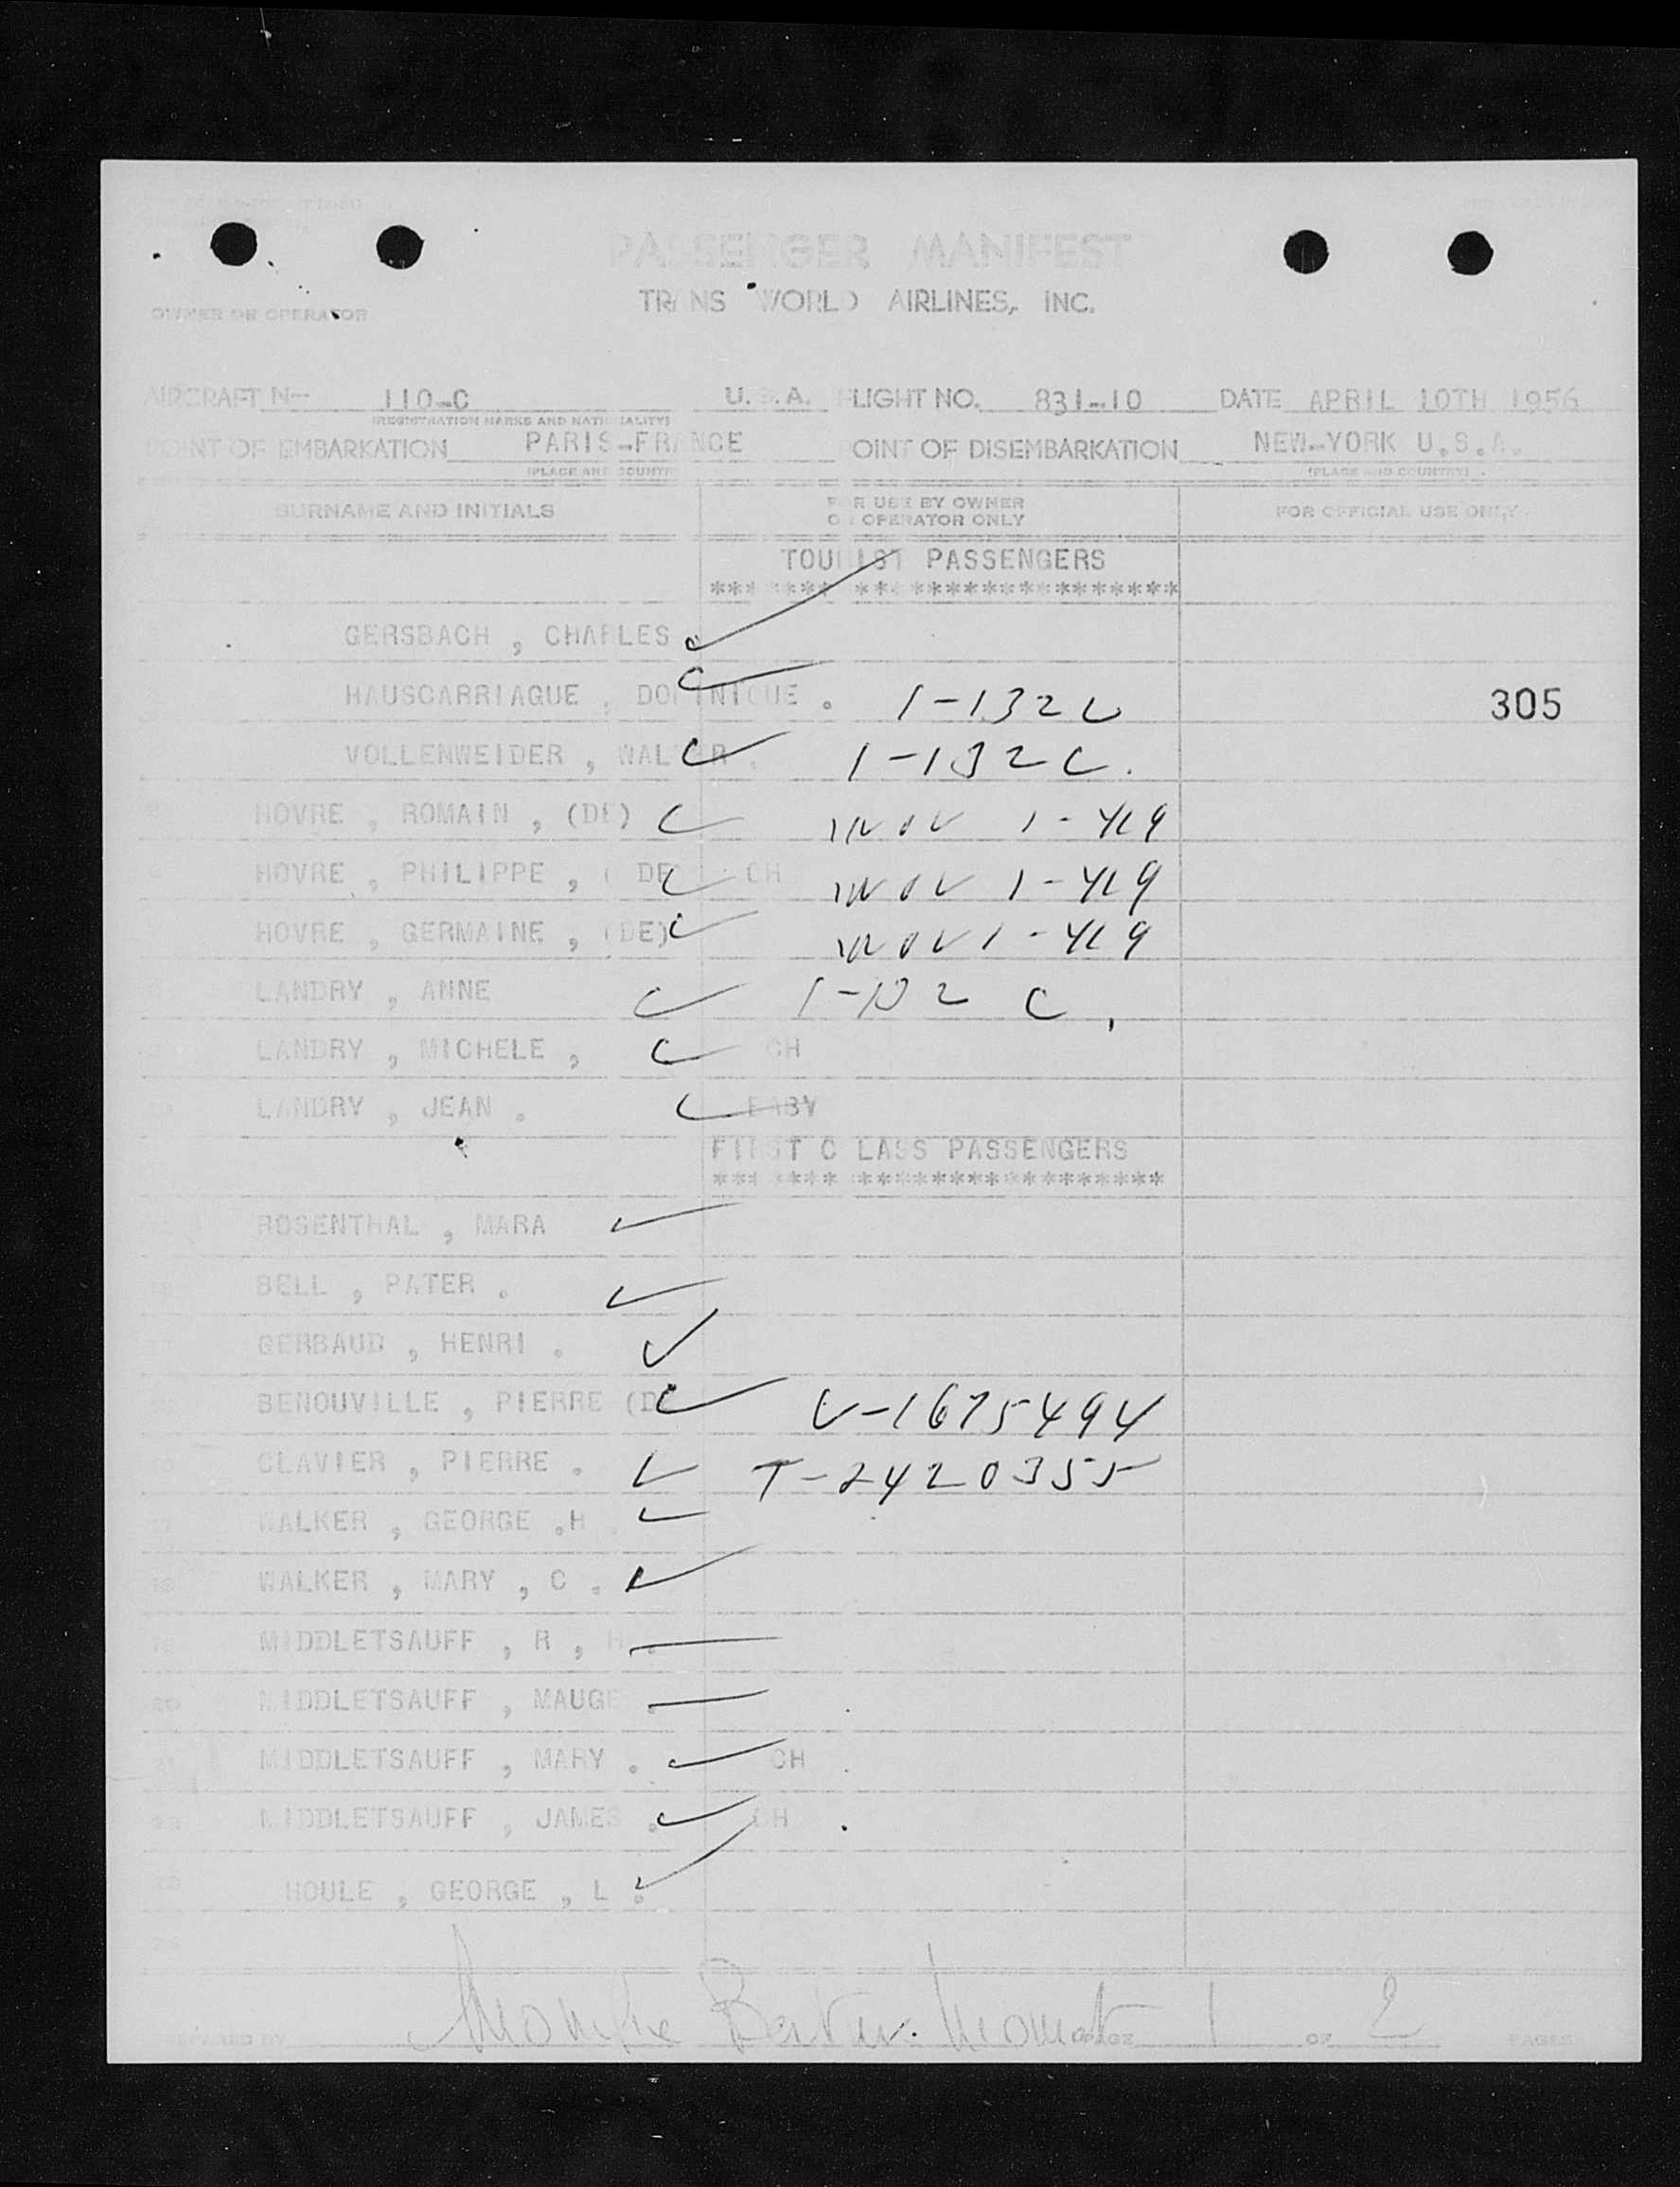 PASSENGER MANIFEST
TRANS WORLD AIRLINES, INC.
OWNER OR OPERATOR
AIRCRAFT N- 110-C U.S.A. FLIGHT NO. 831-10 DATE APRIL 10TH 1956
(REGISTRATION MARKS AND NATIONALITY)
POINT OF EMBARKATION PARIS-FRANCE POINT OF DISEMBARKATION NEW-YORK U.S.A.
(PLACE AND COUNTRY) (PLACE AND COUNTRY)
SURNAME AND INITIALS FOR USE BY OWNER OR OPERATOR ONLY FOR OFFICIAL USE ONLY
TOURIST PASSENGERS
**************************
GERSBACH , CHARLES
HAUSCARRIAGUE , DOMINIQUE . 1-132C 305
VOLLENWEIDER , WALTER . 1-132C.
HOVRE , ROMAIN , (DE) 1-419
HOVRE , PHILIPPE , ( DE CH 1-419
HOVRE , GERMAINE , (DE) 1-419
LANDRY , ANNE 1-132 C.
LANDRY , MICHELE , CH
LANDRY , JEAN . BABY
FIRST C LASS PASSENGERS
*************************
ROSENTHAL , MARA
BELL , PATER .
GERBAUD , HENRI .
BENOUVILLE , PIERRE (D V-1675494
CLAVIER , PIERRE . T-2420355
17 WALKER , GEORGE .H .
18 WALKER , MARY , C .
19 MIDDLETSAUFF , R , H .
20 MIDDLETSAUFF , MAUGE .
21 MIDDLETSAUFF , MARY . CH
22 MIDDLETSAUFF , JAMES . CH
23 HOULE , GEORGE , L .
PREPARED BY PAGE 1 OF 2 PAGES